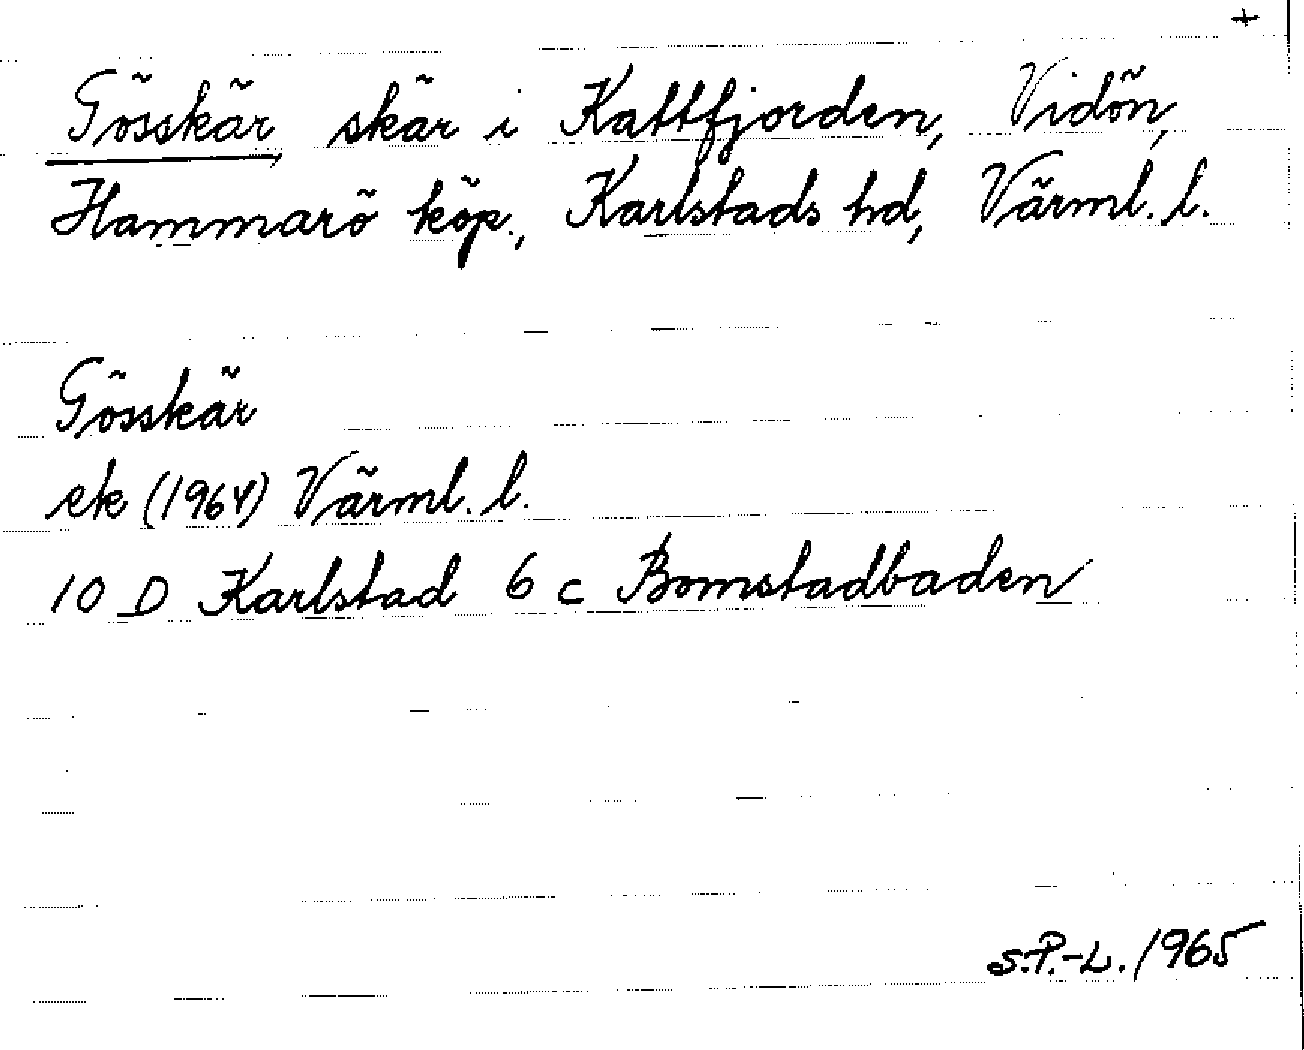 +
Gösskär, skär i Kattfjorden, Vidön,
Hammarö köp., Karlstads hd, Värml. l.
Gösskär
ek (1964) Värml. l.
10 D Karlstad 6 c Bomstadbaden
S.P.-L. 1965